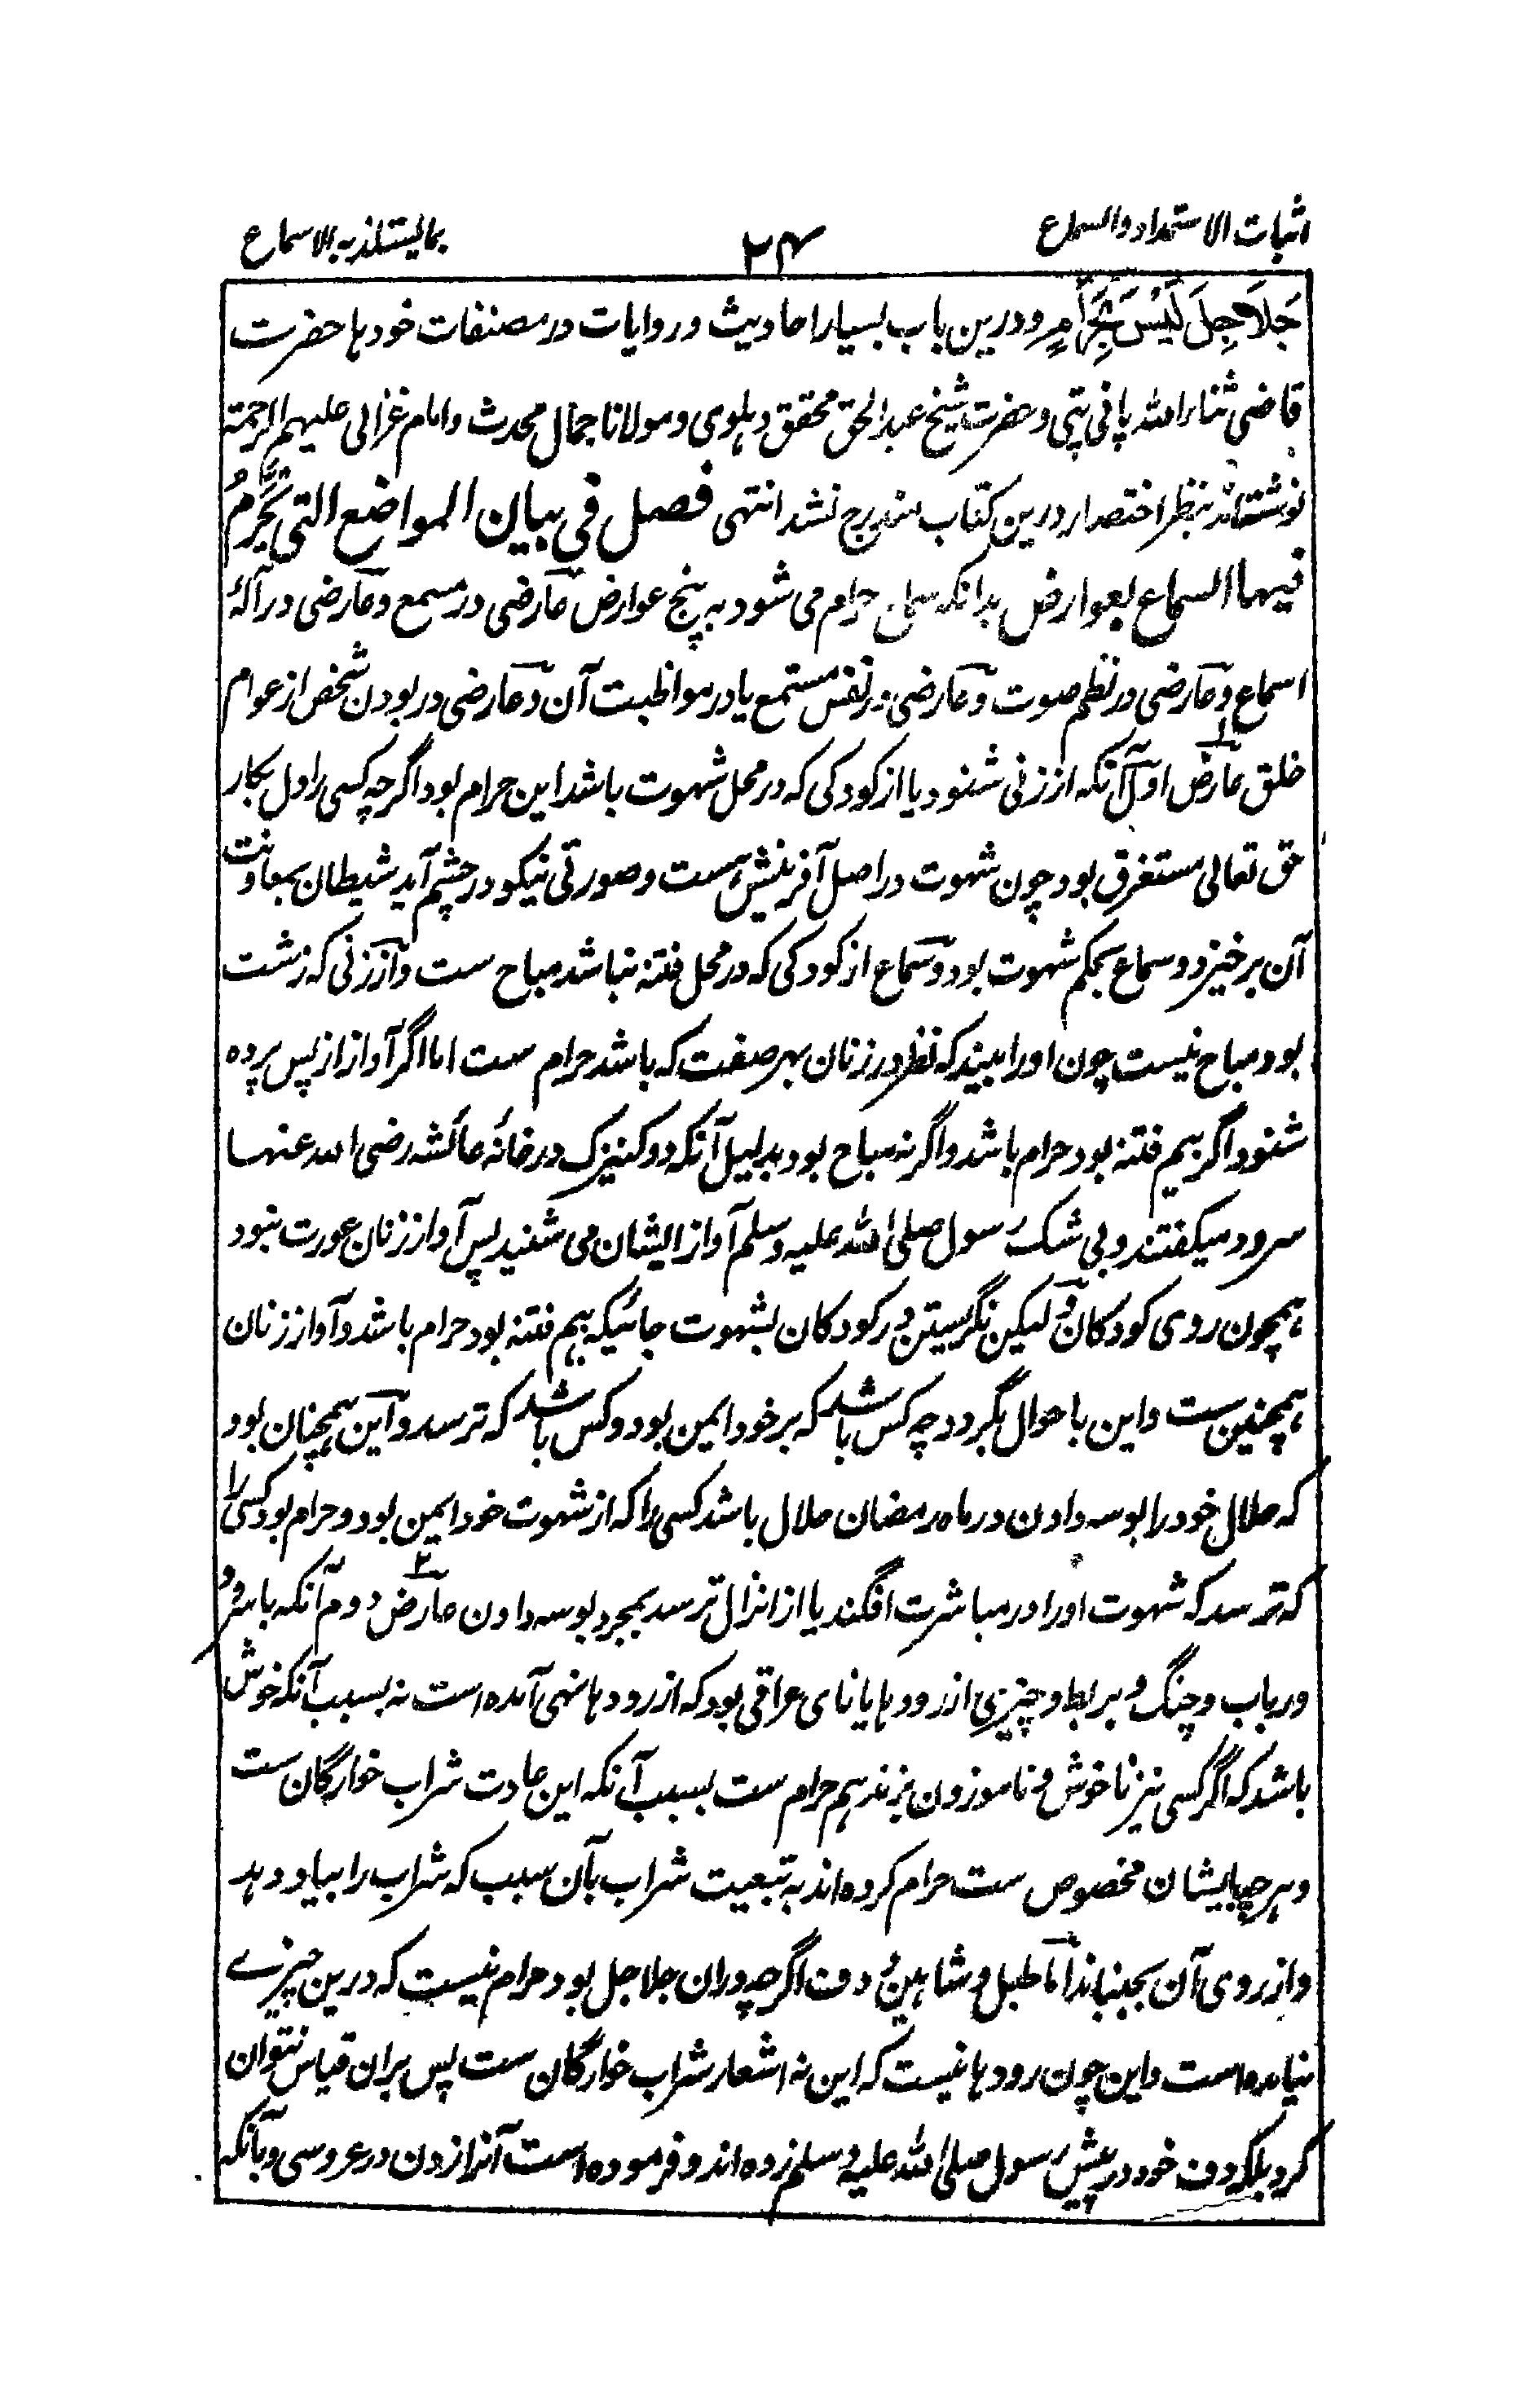 اثبات الاستمداد والسماع
۲۴
بما یستلذ به الاسماع
جَلَاجِلَ لَیْسَ بِحَرَامٍ و درین باب بسیار احادیث و روایات در مصنفات خود ہا حضرت
قاضی ثناء اللہ پانی پتی و حضرت شیخ عبد الحق محقق دہلوی و مولانا جمال محدث و امام غزالی علیہم الرحمۃ
نوشتہ اند بنظر اختصار درین کتاب مندرج نشد انتہی فصل فی بیان المواضع التی یَحْرُمُ
فیہا السماع بعوارض بدانکہ سماع حرام می شود بہ پنج عوارض عارضی در مسمع و عارضی در آلۂ
اسماع و عارضی در نظم صوت و عارضی در نفس مستمع یا در مواظبت آن و عارضی در بودن شخص از عوام
خلق عارض اول آنکہ از زنی شنود یا از کودکی کہ در محل شہوت باشد این حرام بود اگرچہ کسی را دل بکار
حق تعالی مستغرق بود چون شہوت در اصل آفرینش ہست و صورتی نیکو در چشم آید شیطان بمعاونت
آن برخیزد و سماع بحکم شہوت بود و سماع از کودکی کہ در محل فتنہ نباشد مباح ست و از زنی کہ زشت
بود مباح نیست چون او را بیند کہ نظر در زنان بہر صفت کہ باشد حرام ست اما اگر آواز از پس پردہ
شنود اگر بیم فتنہ بود حرام باشد و اگر نہ مباح بود بدلیل آنکہ دو کنیزک در خانۂ عائشہ رضی اللہ عنہا
سرود میگفتند و بی شک رسول صلی اللہ علیہ وسلم آواز ایشان می شنید پس آواز زنان عورت نبود
ہمچون روی کودکان و لیکن نگریستن در کودکان بشہوت جائیکہ بیم فتنہ بود حرام باشد و آواز زنان
ہمچنین ست و این باحوال بگردد چہ کس باشد کہ بر خود ایمن بود و کس باشد کہ ترسد و این ہمچنان بود
کہ حلال خود را بوسہ دادن در ماہ رمضان حلال باشد کسی را کہ از شہوت خود ایمن بود و حرام بود کسی را
کہ ترسد کہ شہوت او را در مباشرت افگند یا از انزال ترسد بمجرد بوسہ دادن عارض ۲ دوم آنکہ با سرود
و رباب و چنگ و بربط و چیزی از رودہا یا نای عراقی بود کہ از رودہا نہی آمدہ است نہ بسبب آنکہ خوش
باشد کہ اگر کسی نیز ناخوش و ناموزون بزند ہم حرام ست بسبب آنکہ این عادت شراب خوارگان ست
و ہرچہ بایشان مخصوص ست حرام کردہ اند بہ تبعیت شراب بآن سبب کہ شراب را بیاد دہد
و آرزوی آن بجنباند اما طبل و شاہین و دف اگرچہ دران جلاجل بود حرام نیست کہ درین چیزے
نیامدہ است و این چون رودہا نیست کہ این نہ اشعار شراب خوارگان ست پس بران قیاس نتوان
کرد بلکہ دف خود در پیش رسول صلی اللہ علیہ وسلم زدہ اند و فرمودہ است آنرا زدن در عروسی و بآنکہ